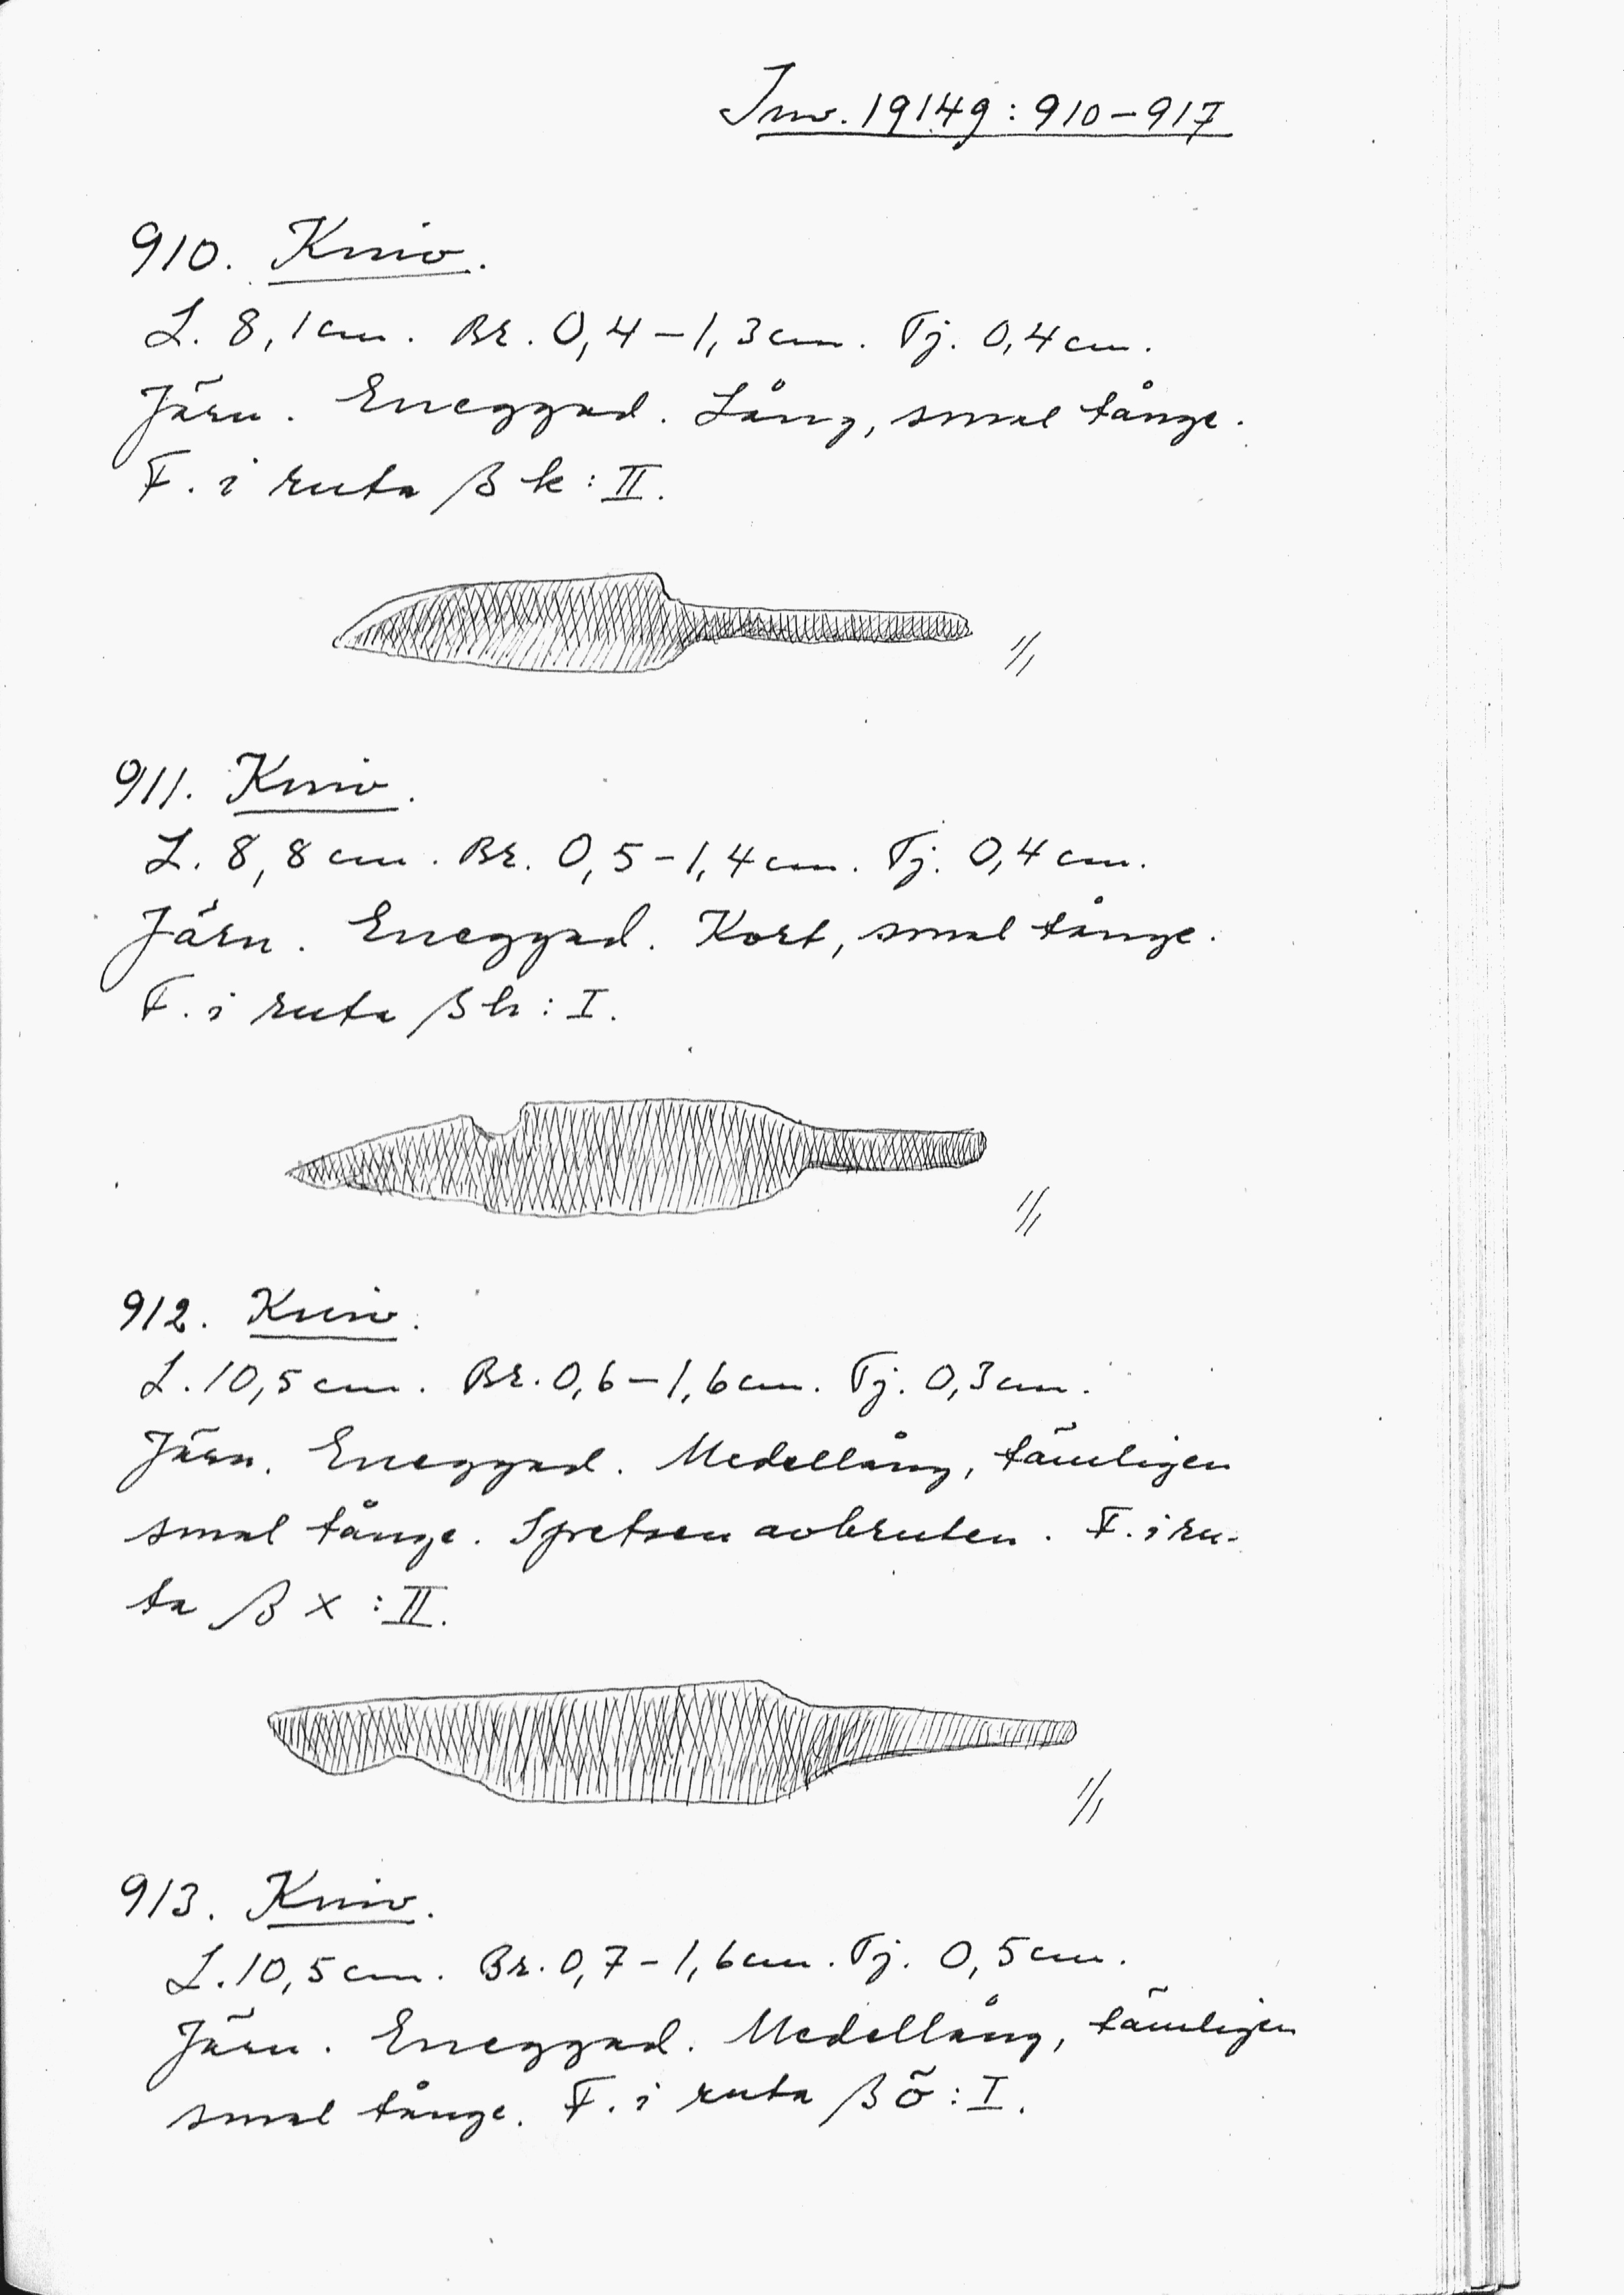 Inv. 19149: 910-917
910. Kniv.
L. 8,1 cm. Br. 0,4-1,3 cm. Tj. 0,4 cm.
Järn. Eneggad. Lång, smal tånge.
F. i ruta βk: II.
1/1
911. Kniv.
L. 8,8 cm. Br. 0,5-1,4 cm. Tj. 0,4 cm.
Järn. Eneggad. Kort, smal tånge.
F. i ruta βh: I.
1/1
912. Kniv.
L. 10,5 cm. Br. 0,6-1,6 cm. Tj. 0,3 cm.
Järn. Eneggad. Medellång, tämligen
smal tånge. Spetsen avbruten. F. i ru-
ta βx: II.
1/1
913. Kniv.
L. 10,5 cm. Br. 0,7-1,6 cm. Tj. 0,5 cm.
Järn. Eneggad. Medellång, tämligen
smal tånge. F. i ruta βö: I.